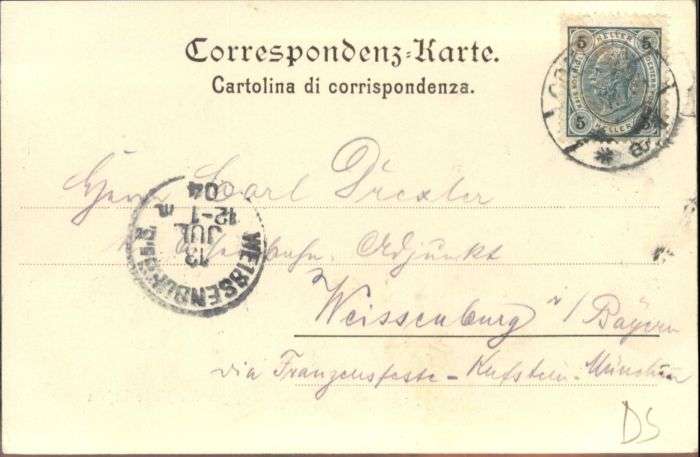 Correspondenz-Karte.
Cartolina di corrispondenza.
5 HELLER 5
5 HELLER 5
Herrn Carl Drexler
Adjunkt
Weissenburg i/Bayern
via Franzensfeste-Kufstein-München
WEISSENBURG
13
JUL
12-1
04
DS